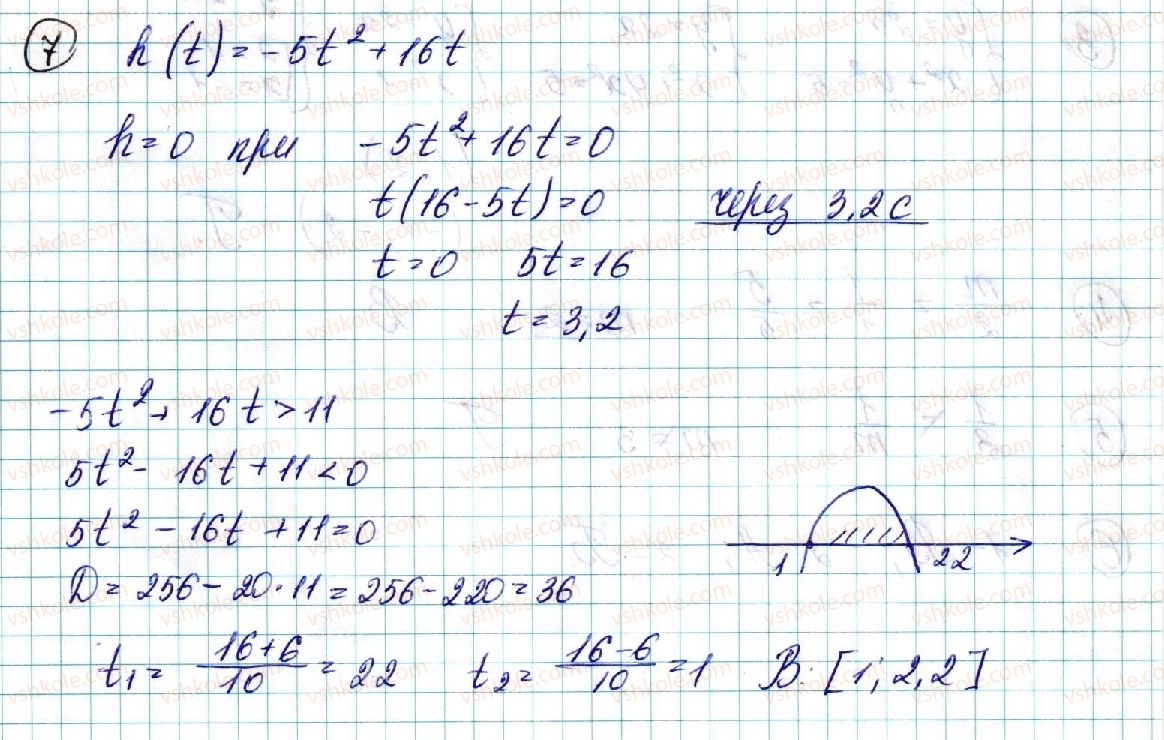 7 h(t) = -5t² + 16t
h = 0 при -5t² + 16t = 0
t(16 - 5t) = 0 через 3,2 с
t = 0 5t = 16
t = 3,2
-5t² + 16t > 11
5t² - 16t + 11 < 0
5t² - 16t + 11 = 0
1 22
D = 256 - 20·11 = 256 - 220 = 36
t₁ = (16+6)/10 = 22 t₂ = (16-6)/10 = 1 В: [1; 2,2]
vshkole.com